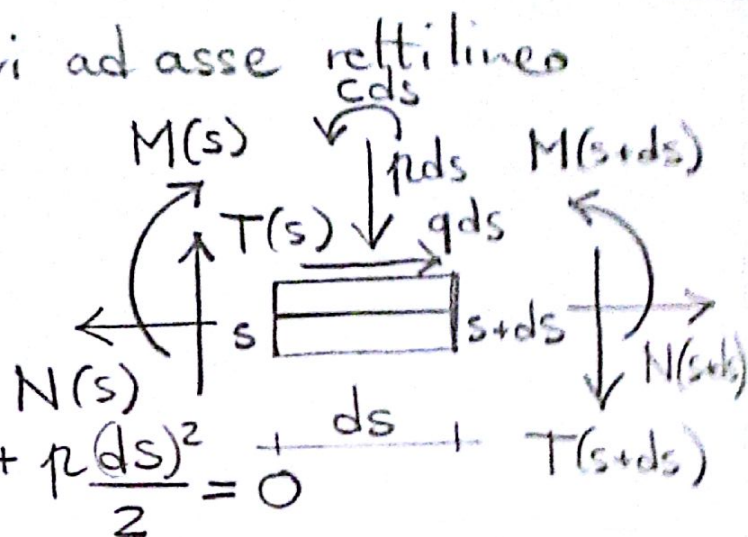 i ad asse rettilineo
cds
M(s) pds M(s+ds)
T(s) qds
s s+ds
N(s) N(s+ds)
ds
+ p(ds)²/2 = 0 T(s+ds)